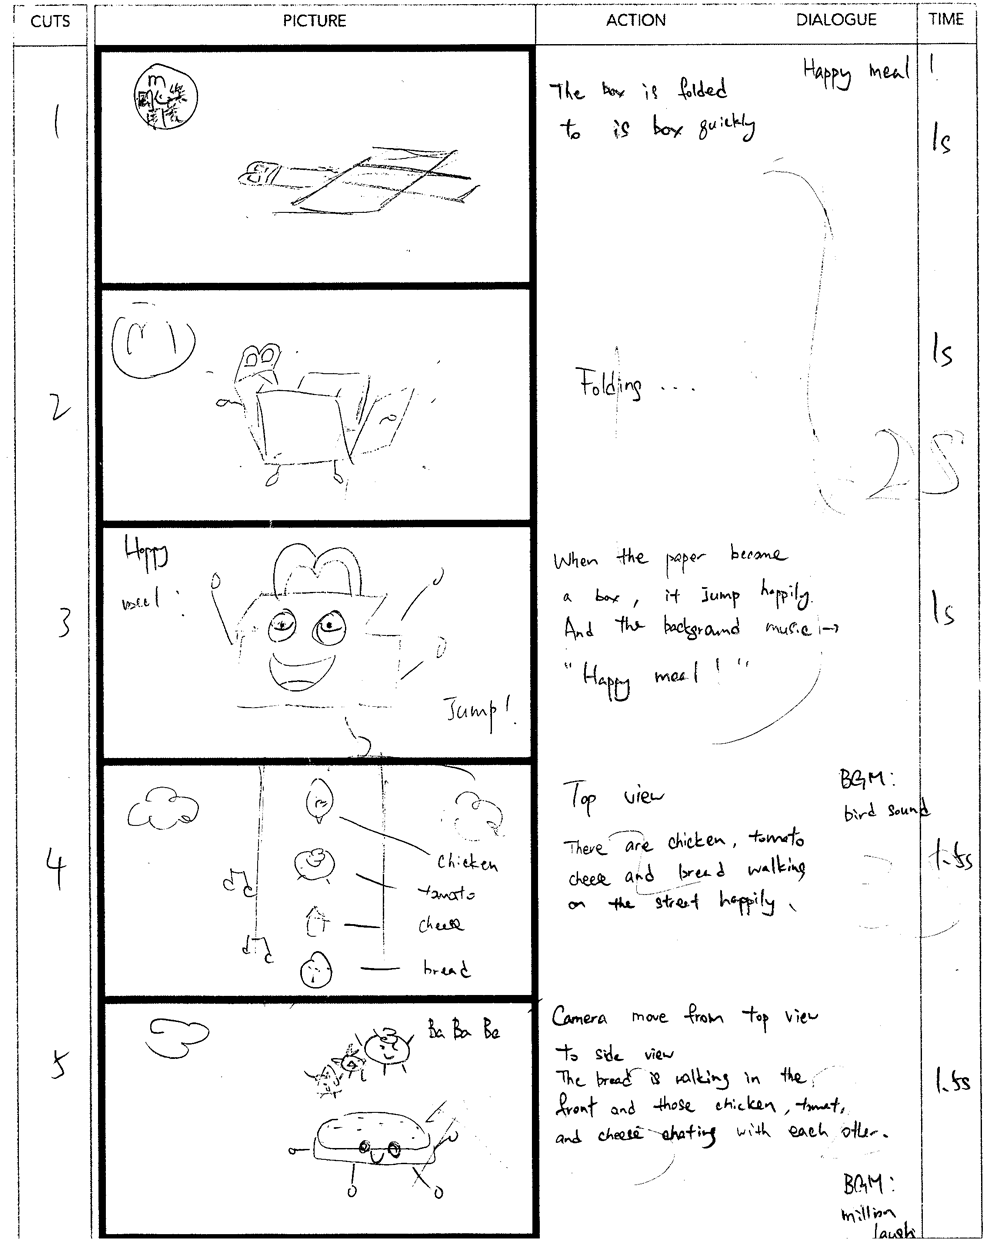 CUTS PICTURE ACTION DIALOGUE TIME
1
m
The box is folded
to is box quickly
Happy meal !
1s
2
m
Folding ...
1s
2S
3
Happy
meel !
Jump!
When the paper become
a box, it Jump happily.
And the background music →
"Happy meal ! "
1s
4
chicken
tomato
cheese
bread
Top view
There are chicken, tomato
cheese and bread walking
on the street happily.
BGM:
bird sound
1.5s
5
Ba Ba Ba
Camera move from top view
to side view
The bread is walking in the
front and those chicken, tomat,
and cheese chating with each other.
BGM:
million
laugh
1.5s